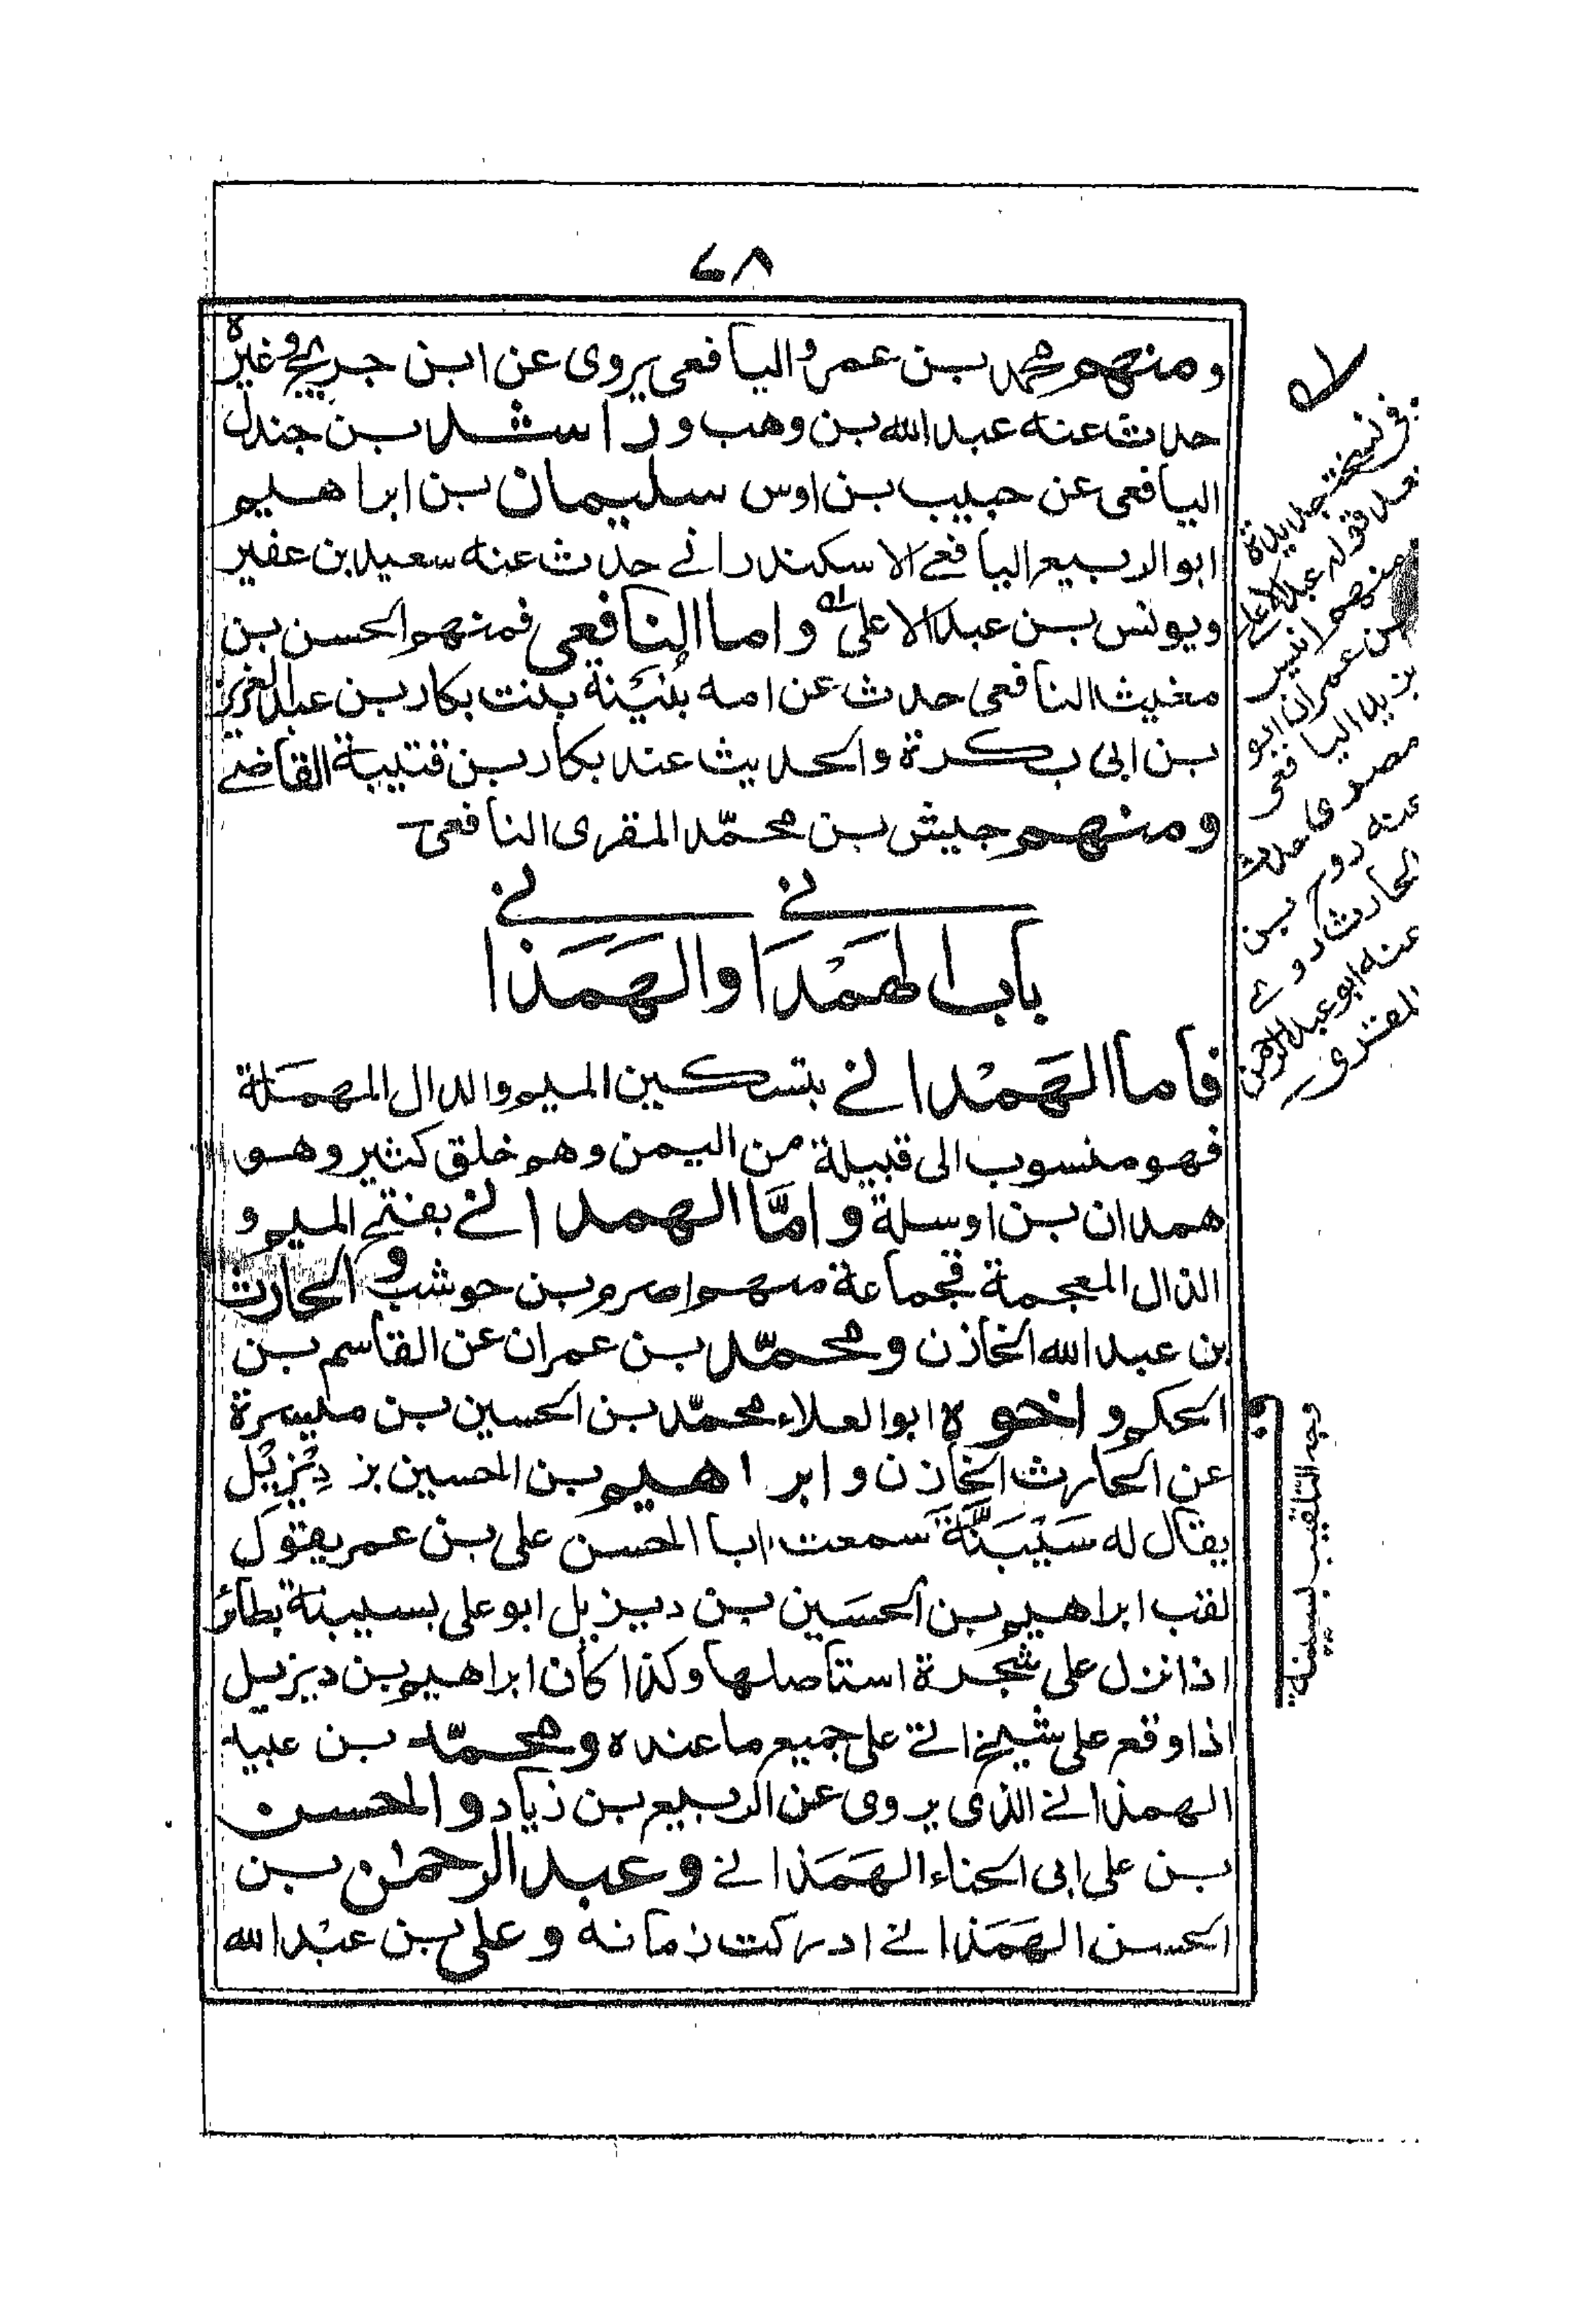 ٧٨
ومنهم محمد بن عمرو اليافعي يروى عن ابن جريج وغيره
حدث عنه عبد الله بن وهب وراشد بن جندل
اليافعى عن حبيب بن اوس سليمان بن ابراهيم
ابو الربيع اليافعے الاسكندرانے حدث عنه سعيد بن عفير
ويونس بن عبد الاعلى واما النافعى فمنهم الحسن بن
مغيث النافعى حدث عن امه بُنَيْنة بنت بكار بن عبد العزيز
بن ابى بكرة والحديث عند بكار بن قتيبة القاضے
ومنهم جيش بن محمّد المقرى النافعى
باب الهَمْدَانے والهَمَذَانے
فاما الهَمْدانے بتسكين الميم والدال المهمَلة
فهو منسوب الى قبيلة من اليمن وهم خلق كثير وهو
همدان بن اوسلة وامَّا الهمدانے بفتح الميم و
الذال المعجمة فجماعة منهم اصرم بن حوشب والحارث
بن عبد الله الخازن ومحمّد بن عمران عن القاسم بن
الحكم واخوه ابو العلاء محمّد بن الحسين بن ميسرة
عن الحارث الخازن وابراهيم بن الحسين بن دِيْزِيْل
يقال له سَيْبَنَّة سمعت ابا الحسن على بن عمر يقول
لقب ابراهيم بن الحسَين بن ديزيل ابو على بسيبنة بطائر
اذا نزل على شجرة استاصلها وكذا كان ابراهيم بن ديزيل
اذا وقع على شيخ اتے على جميع ما عنده ومحمّد بن عبيد
الهمذانے الذى يروى عن الربيع بن زياد والحسن
بن على ابى الحناء الهَمَذانے وعبد الرحمٰن بن
الحسن الهَمَذانے ادركت زمانه وعلى بن عبْد الله
فى نسخة جديدة
بعد قوله عبد الاعلے
منهم انيس
بن عمران ابو
يزيد اليافعى
مصرى حدث
عنه روح بن
الحارث روے
عنه ابو عبد الرحمن
المقرى
وجه التلقيب بسيبنة